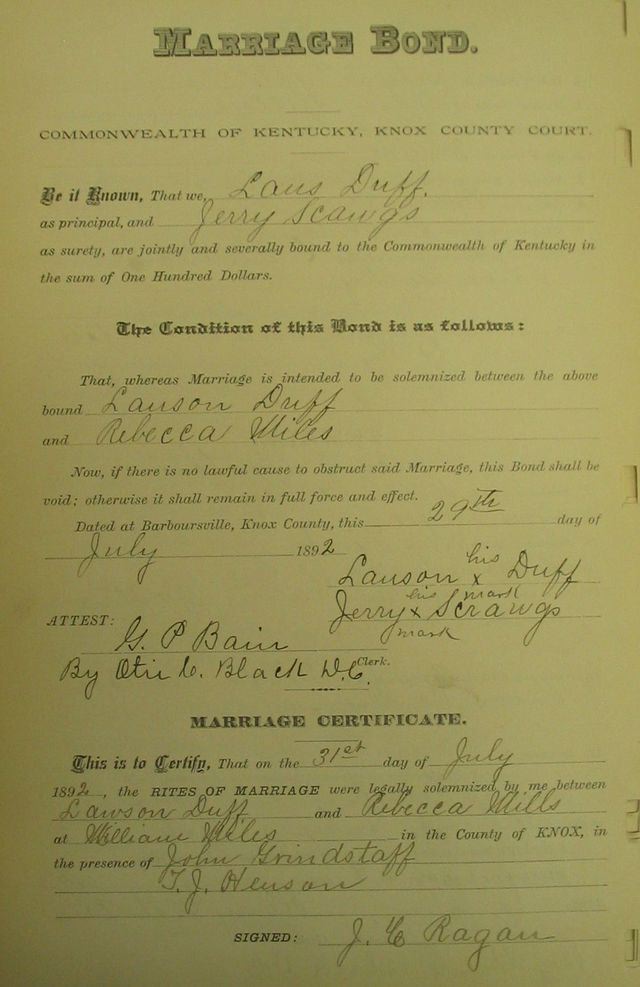 MARRIAGE BOND.
COMMONWEALTH OF KENTUCKY, KNOX COUNTY COURT.
Be it Known, That we, Laus Duff.
as principal, and Jerry Scawgs
as surety, are jointly and severally bound to the Commonwealth of Kentucky in
the sum of One Hundred Dollars.
The Condition of this Bond is as follows:
That, whereas Marriage is intended to be solemnized between the above
bound Lauson Duff
and Rebecca Miles
Now, if there is no lawful cause to obstruct said Marriage, this Bond shall be
void; otherwise it shall remain in full force and effect.
Dated at Barboursville, Knox County, this 29th day of
July 1892
Lauson his x mark Duff
Jerry his x mark Scrawgs
ATTEST:
G. P Bain
By Otis C. Black D.C. Clerk.
MARRIAGE CERTIFICATE.
This is to Certify, That on the 31st day of July
1892, the RITES OF MARRIAGE were legally solemnized by me between
Lawson Duff and Rebecca Mills
at William Miles in the County of KNOX, in
the presence of John Grindstaff
T. J. Henson
SIGNED: J. C Ragan